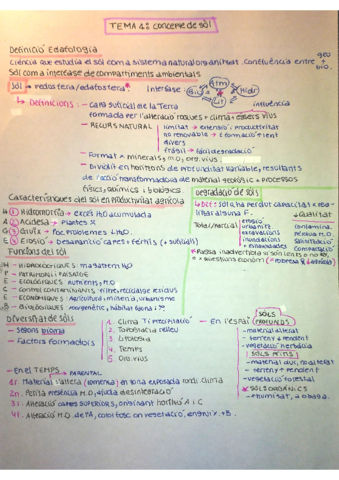 TEMA 4: concepte de sòl
Definició Edafologia
Ciència que estudia el sòl com a sistema natural organitzat. Confluència entre geo + bio.
Sòl com a interfase de compartiments ambientals
Sòl → pedosfera/edafosfera* Interfase Bio Atm Hidr Lit
→ Definicions: - Capa superficial de la Terra influència
formada per l'alteració roques + clima + éssers vius
- RECURS NATURAL limitat → extensió, productivitat
no renovable → formació lent
divers
fràgil → fàcil degradació
- Format x minerals, M.O, org. vius
- Dividit en horitzons de profunditat variable, resultants
de l'acció transformadora de material geològic + processos
físics, químics i biològics
Característiques del sòl en Productivitat agrícola
H ① Hidromorfia → excés H2O acumulada
A ② Acidesa → Plantes
G ③ Gruix → poc problemes ↓ H2O.
E ④ Erosió → Desaparició capes + fèrtils (+ subtils)
Funcions del sòl
H - HIDROLÒGIQUES: mantenim H2O
P - PATRIMONI I PAISATGE
E - ECOLÒGIQUES: nutrients, M.O
E - CONTROL CONTAMINANTS: filtre, reciclatge residus
E - ECONÒMIQUES: Agricultura, mineria, urbanisme
B - BIOLÒGIQUES:
Degradació de sòls
→ DEF: sòl que ha perdut capacitats x realitzar alguna F.
Total/Parcial: erosió
urbanitz
excavacions
inundació
+ enfonsades
Qualitat
contamina.
pèrdua M.O.
Salinització
Compactació
Diversitat de sòls
- Segons bioma
- Factors formadors
1. Clima T i precipitació
2. Topografia relleu
3. Litologia
4. Temps
5. Org. vius
- En l'espai
SÒLS PROFUNDS
- material alterat
- terreny ↓ pendent
- vegetació herbàcia
SÒLS PRIMS
- material dur, no alterat
- terreny ↑ pendent
- vegetació forestal
* SÒLS ORGÀNICS
+ humitat, → obaga.
- En el TEMPS → PARENTAL
1r Material s'altera (comença) en zona exposada condi. clima
2n. Petita presència M.O, ajuda desintegració
3r. Alteració capes superiors, originant horitzó A i C
4t. Alteració M.O de l'A, colorit fosc on vegetació, engruix. + B.